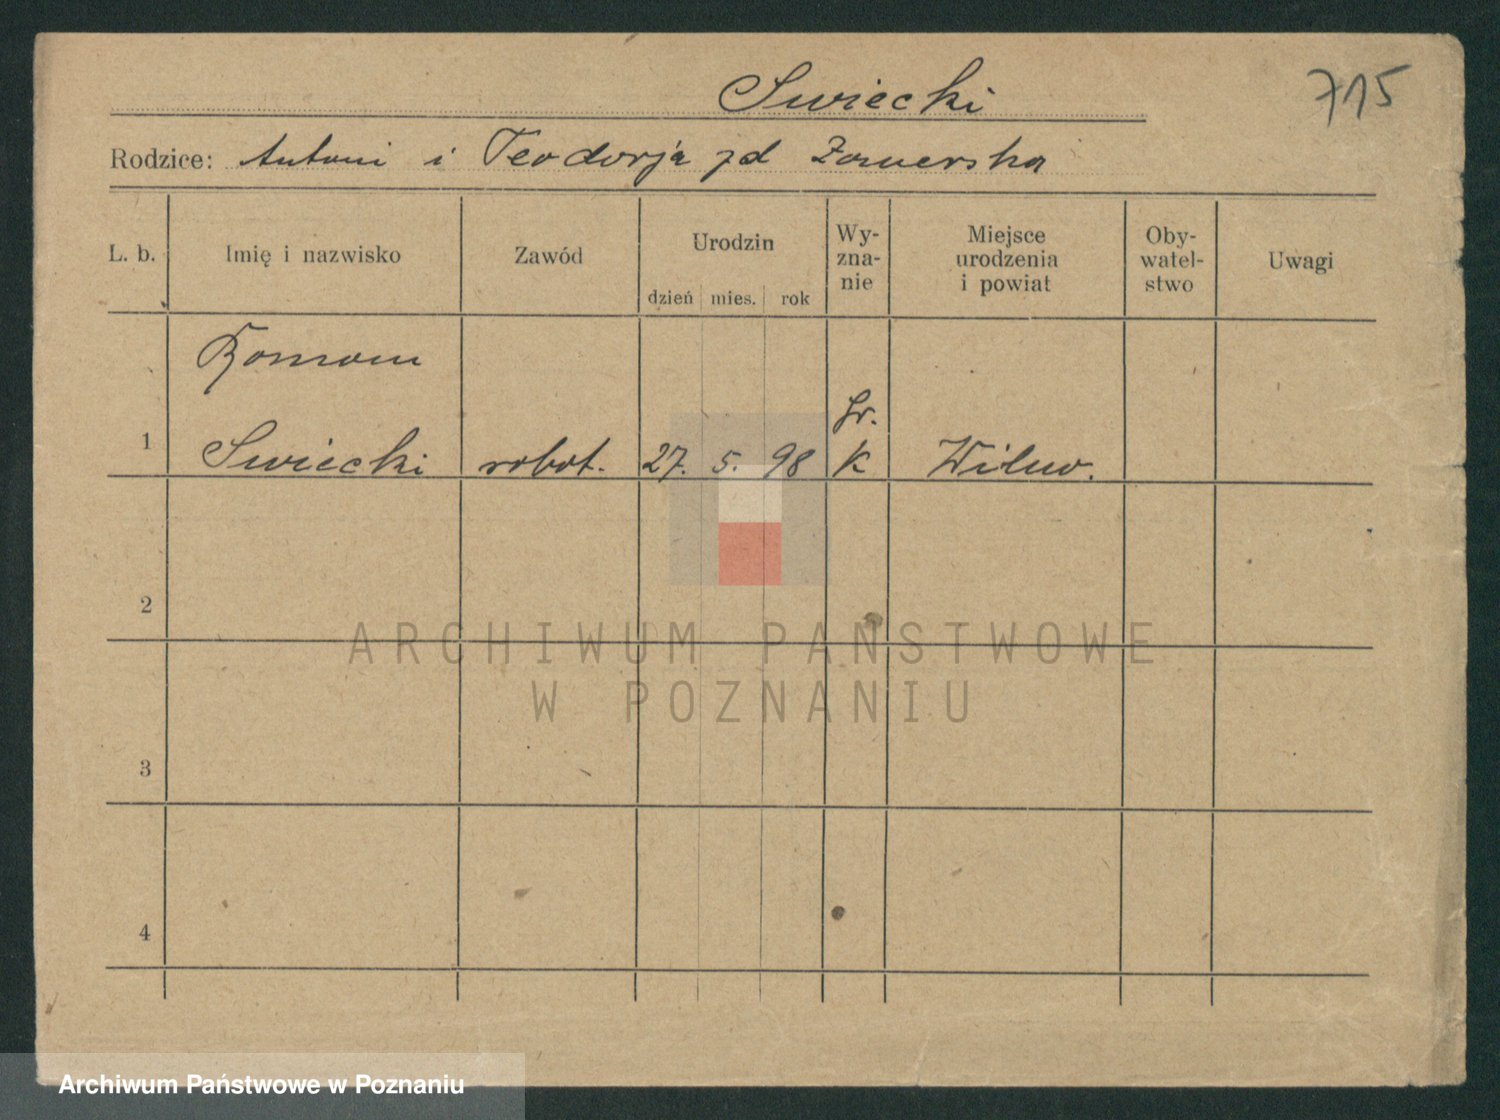 Swiecki
715
Rodzice: Antoni i Teodorja zd
L. b.
Imię i nazwisko
Zawód
Urodzin
dzień mies. rok
Wy-
zna-
nie
Miejsce
urodzenia
i powiat
Oby-
watel-
stwo
Uwagi
Roman
gr.
1 Swiecki robot. 27. 5. 98 K Wilno.
2
ARCHIWUM PAŃSTWOWE
W POZNANIU
3
4
Archiwum Państwowe w Poznaniu